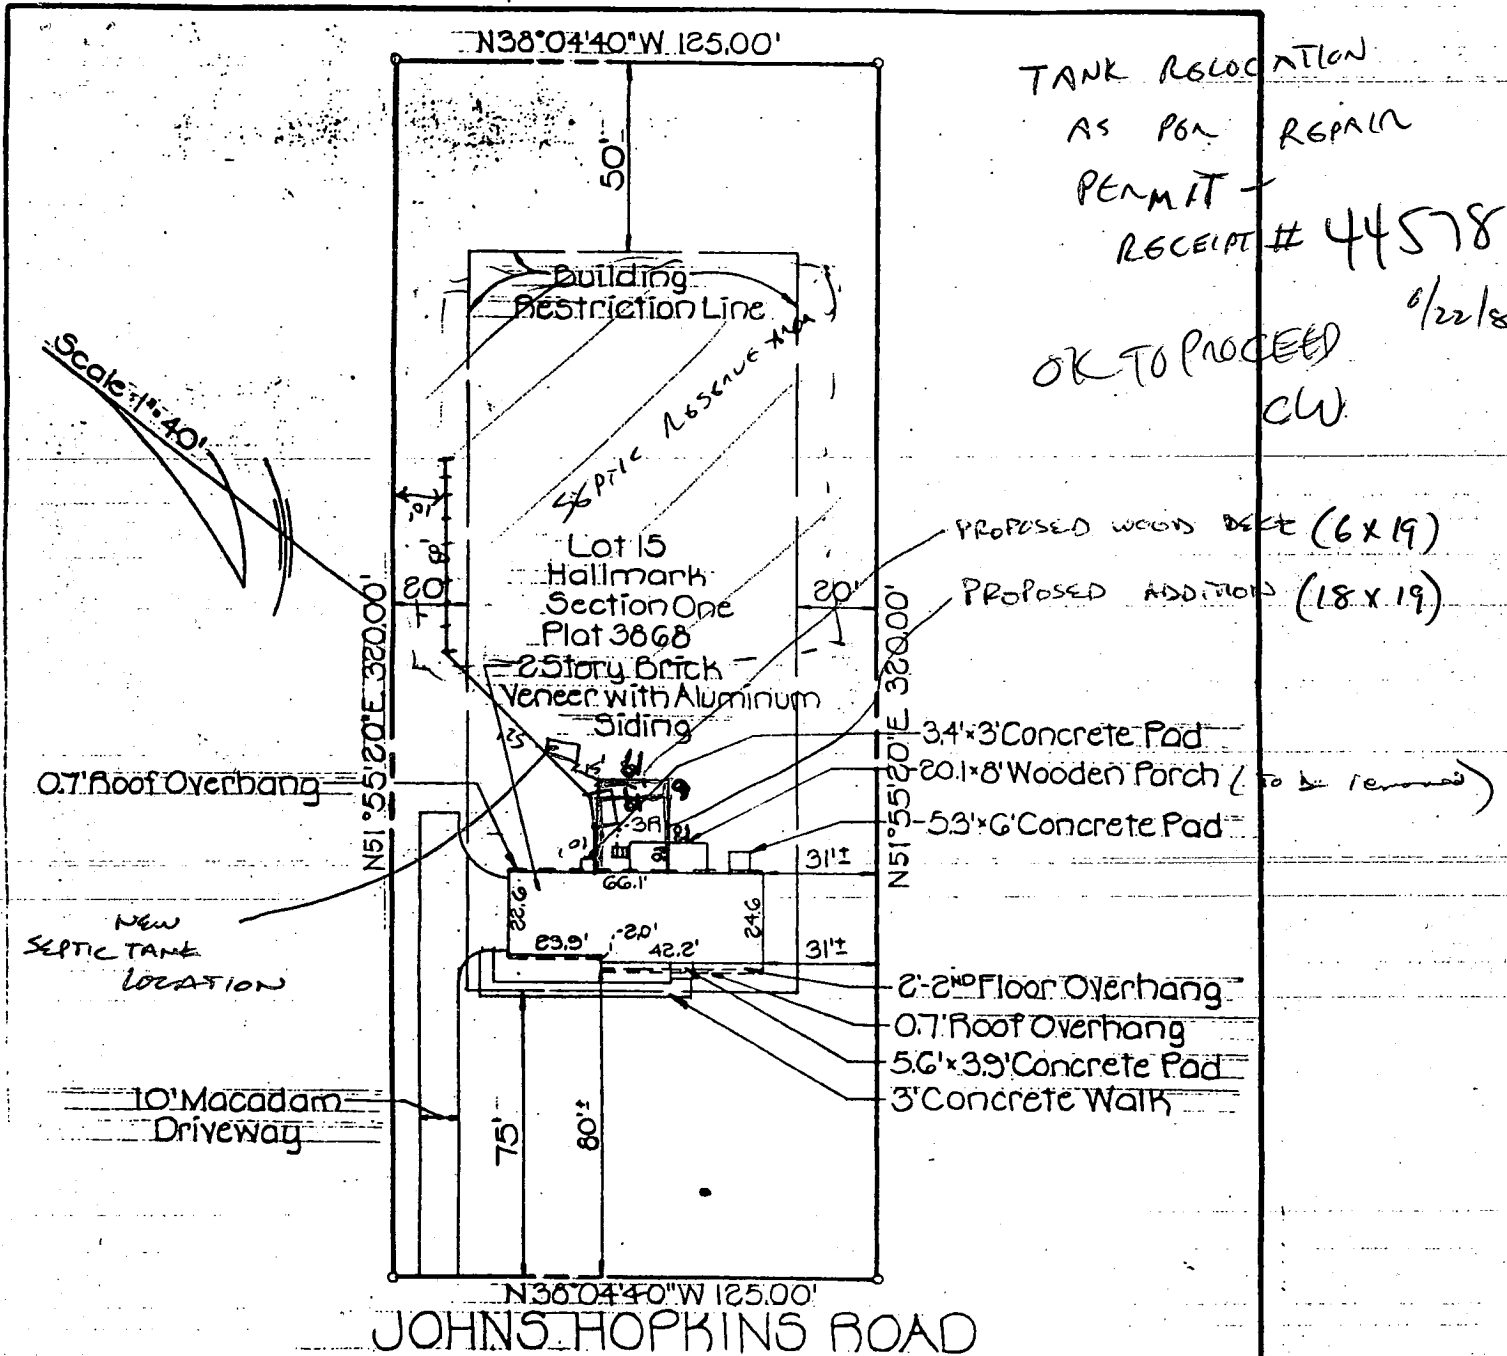 N38°04'40"W 125.00'
TANK RELOCATION
AS PER REPAIR
PERMIT -
RECEIPT # 44578
6/22/8
OK TO PROCEED
CW
50'
Building
Restriction Line
SEPTIC RESERVE AREA
Scale: 1"=40'
10'
20'
20'
Lot 15
Hallmark
Section One
Plat 3868
2 Story Brick
Veneer with Aluminum
Siding
PROPOSED WOOD DECK (6 x 19)
PROPOSED ADDITION (18 x 19)
N51°55'20"E 320.00'
N51°55'20"E 320.00'
3.4'x3' Concrete Pad
20.1x8' Wooden Porch (to be removed)
5.3'x6' Concrete Pad
0.7' Roof Overhang
125
15'
19
6
18
10'
31'±
66.1'
22.6'
24.6
23.9'
2.0'
42.2'
31'±
NEW
SEPTIC TANK
LOCATION
2'-2ND Floor Overhang
0.7' Roof Overhang
5.6'x3.9' Concrete Pad
3' Concrete Walk
10' Macadam
Driveway
75'
80'±
N38°04'40"W 125.00'
JOHNS HOPKINS ROAD